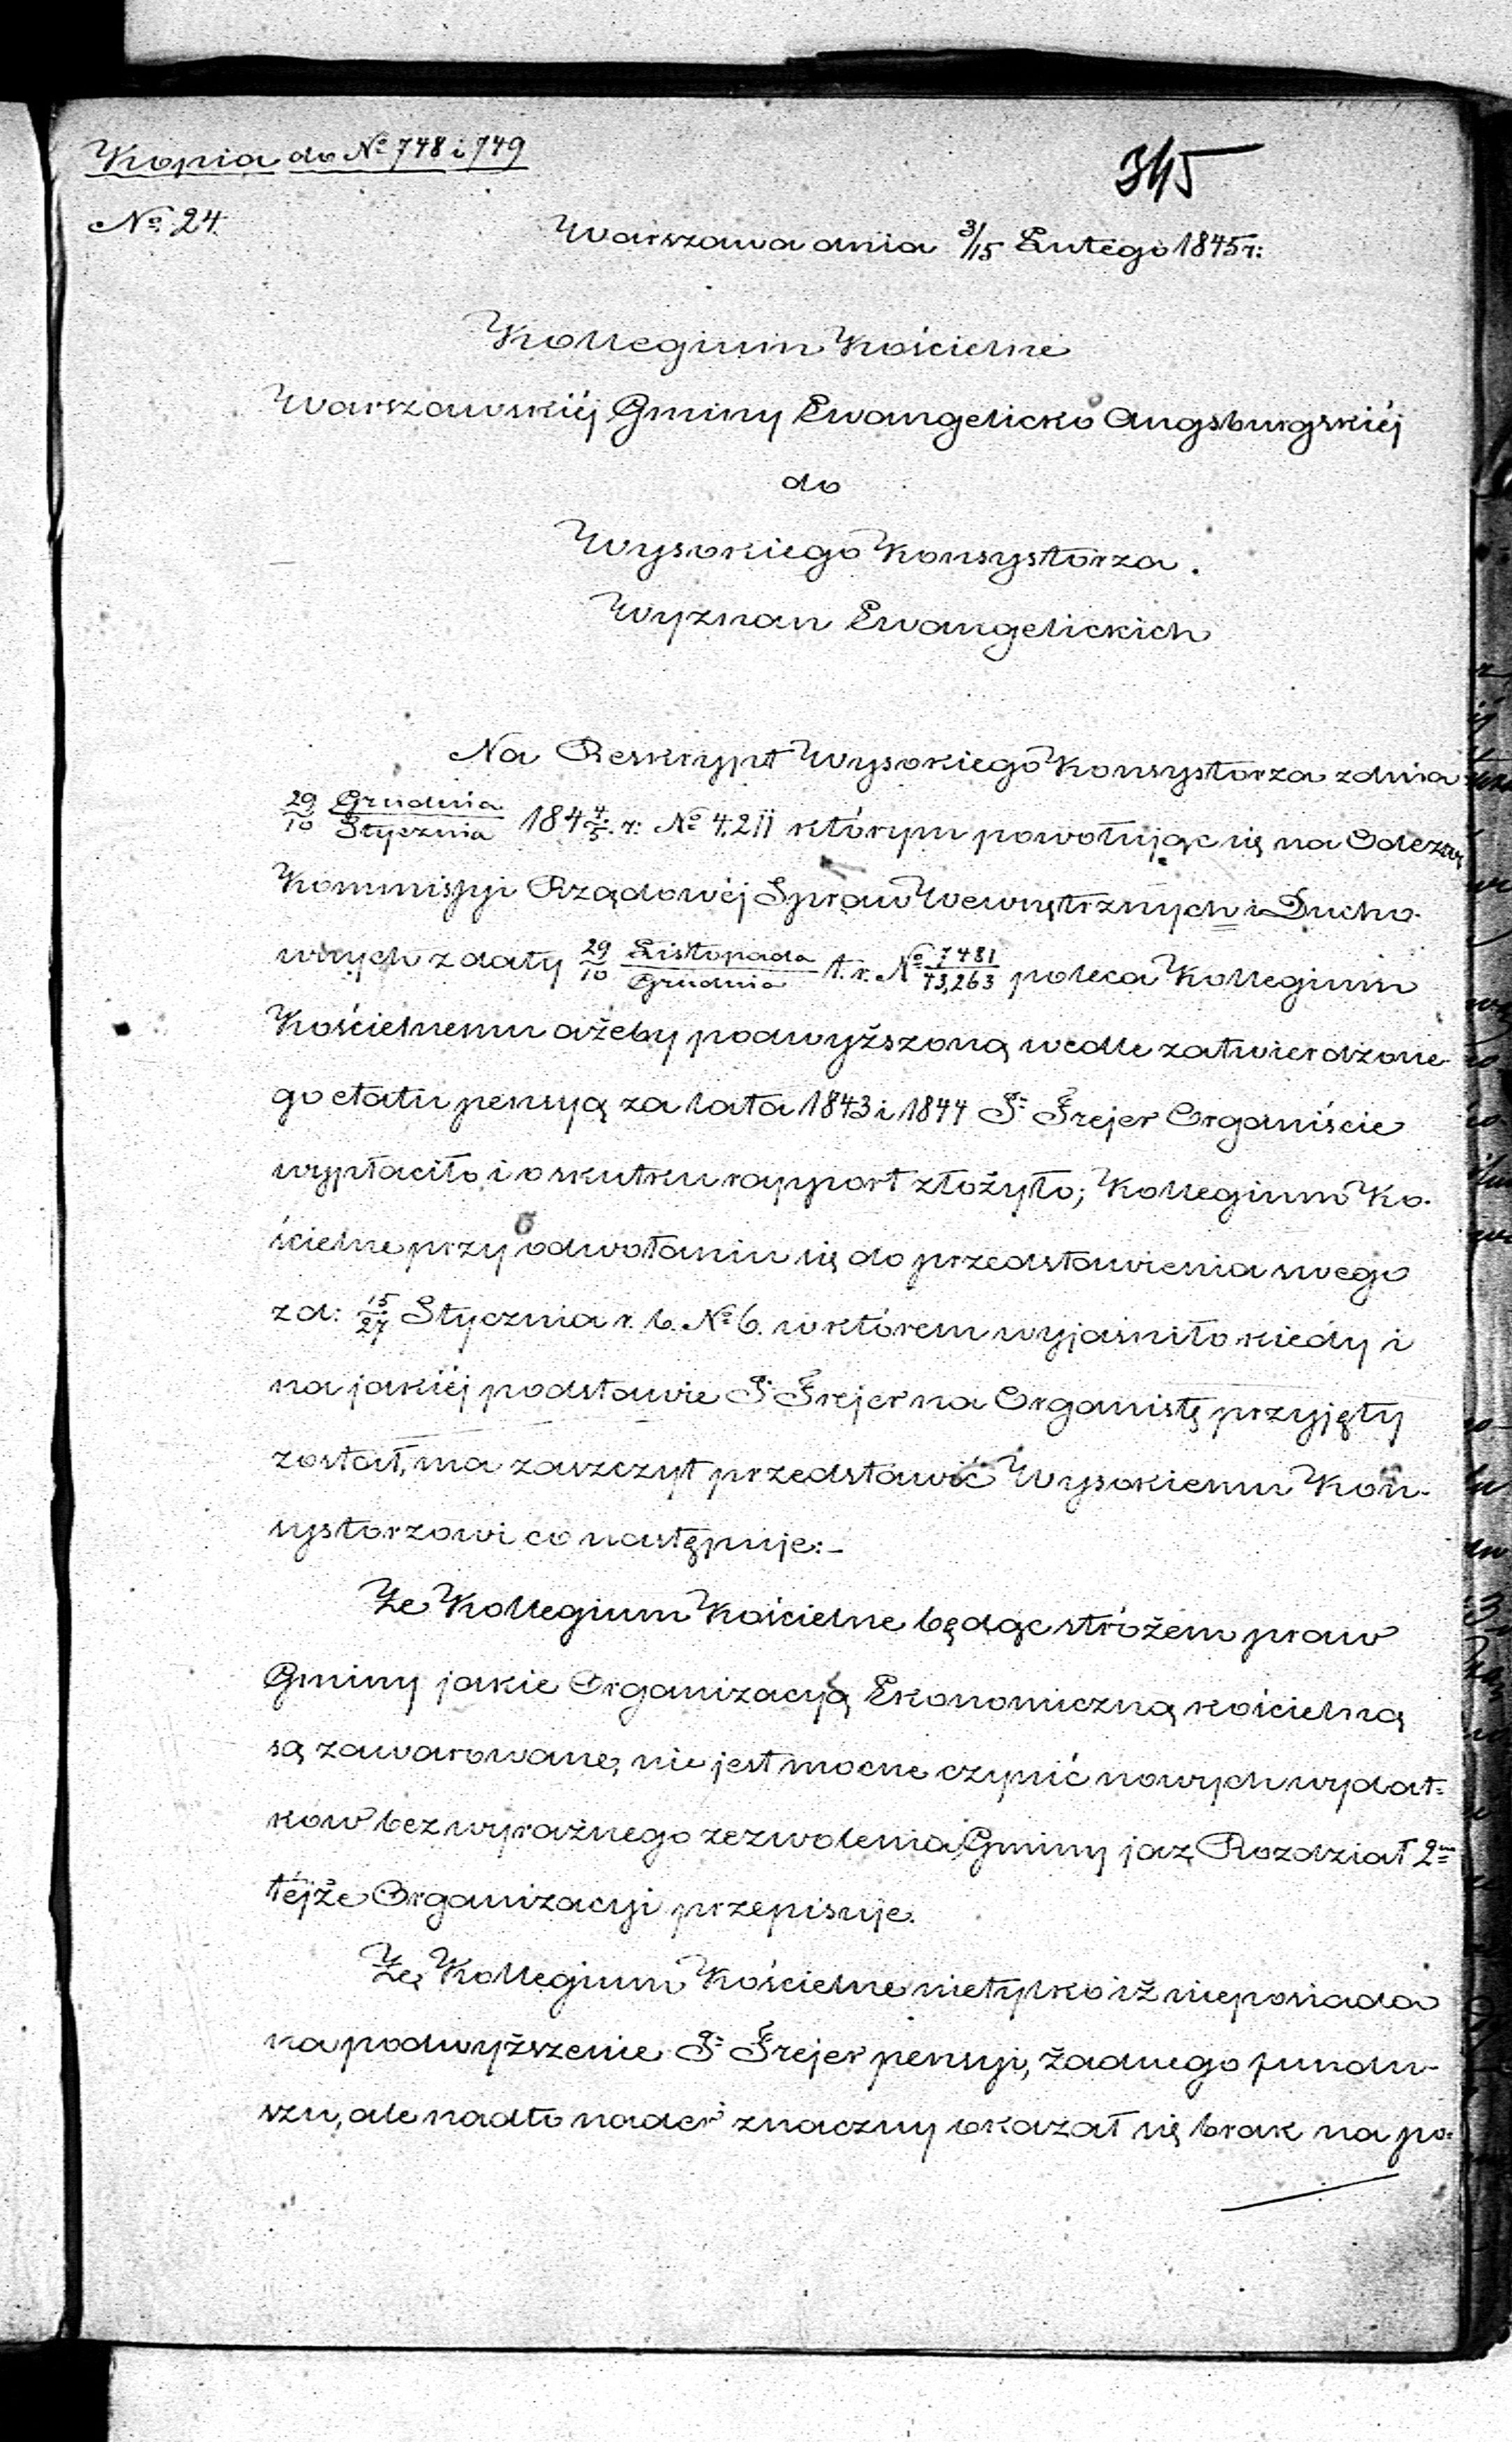 Kopia do No 748 i 749
345
No 24.
Warszawa dnia 3/15 Lutego 1845 r:
Kollegium Kościelne
Warszawskiéj Gminy Ewangelicko Augsburgskiéj
do
Wysokiego Konsystorza.
Wyznan Ewangelickich
Na Reskrypt Wysokiego Konsystorza z dnia
29/10 Grudnia/Stycznia 184 4/5 r: No 4211 którym powołując się na Odezwę
Kommissyi Rządowéj Spraw Wewnętrznych i Ducho-
wnych z daty 29/10 Listopada/Grudnia t. r. No 7481/43,263 poleca Kollegium
Kościelnemu ażeby podwyższoną wedle zatwierdzone
go etatu pensyą za lata 1843 i 1844 P. Frejer Organiście
wypłaciło i o skutku rapport złożyło; Kollegium Ko-
ścielne przy odwołaniu się do przedstawienia swego
z d: 15/27 Stycznia r. b. No 6. w którem wyjaśniło kiedy i
na jakiéj podstawie P. Frejer na Organistę przyjęty
został, ma zaszczyt przedstawić Wysokiemu Kon-
systorzowi co następuje:-
Że Kollegium Kościelne będąc stróżem praw
Gminy jakie Organizacyą Ekonomiczną kościelną
są zawarowane, nie jest mocne czynić nowych wydat-
ków bez wyraźnego zezwolenia Gminy jaz Rozdział 2m
téjże Organizacyi przepisuje.
Że Kollegium Kościelne nietylko iż nieposiada
na podwyższenie P. Frejer pensyi, żadnego fundu-
szu, ale nadto nader znaczny okazał się brak na po-